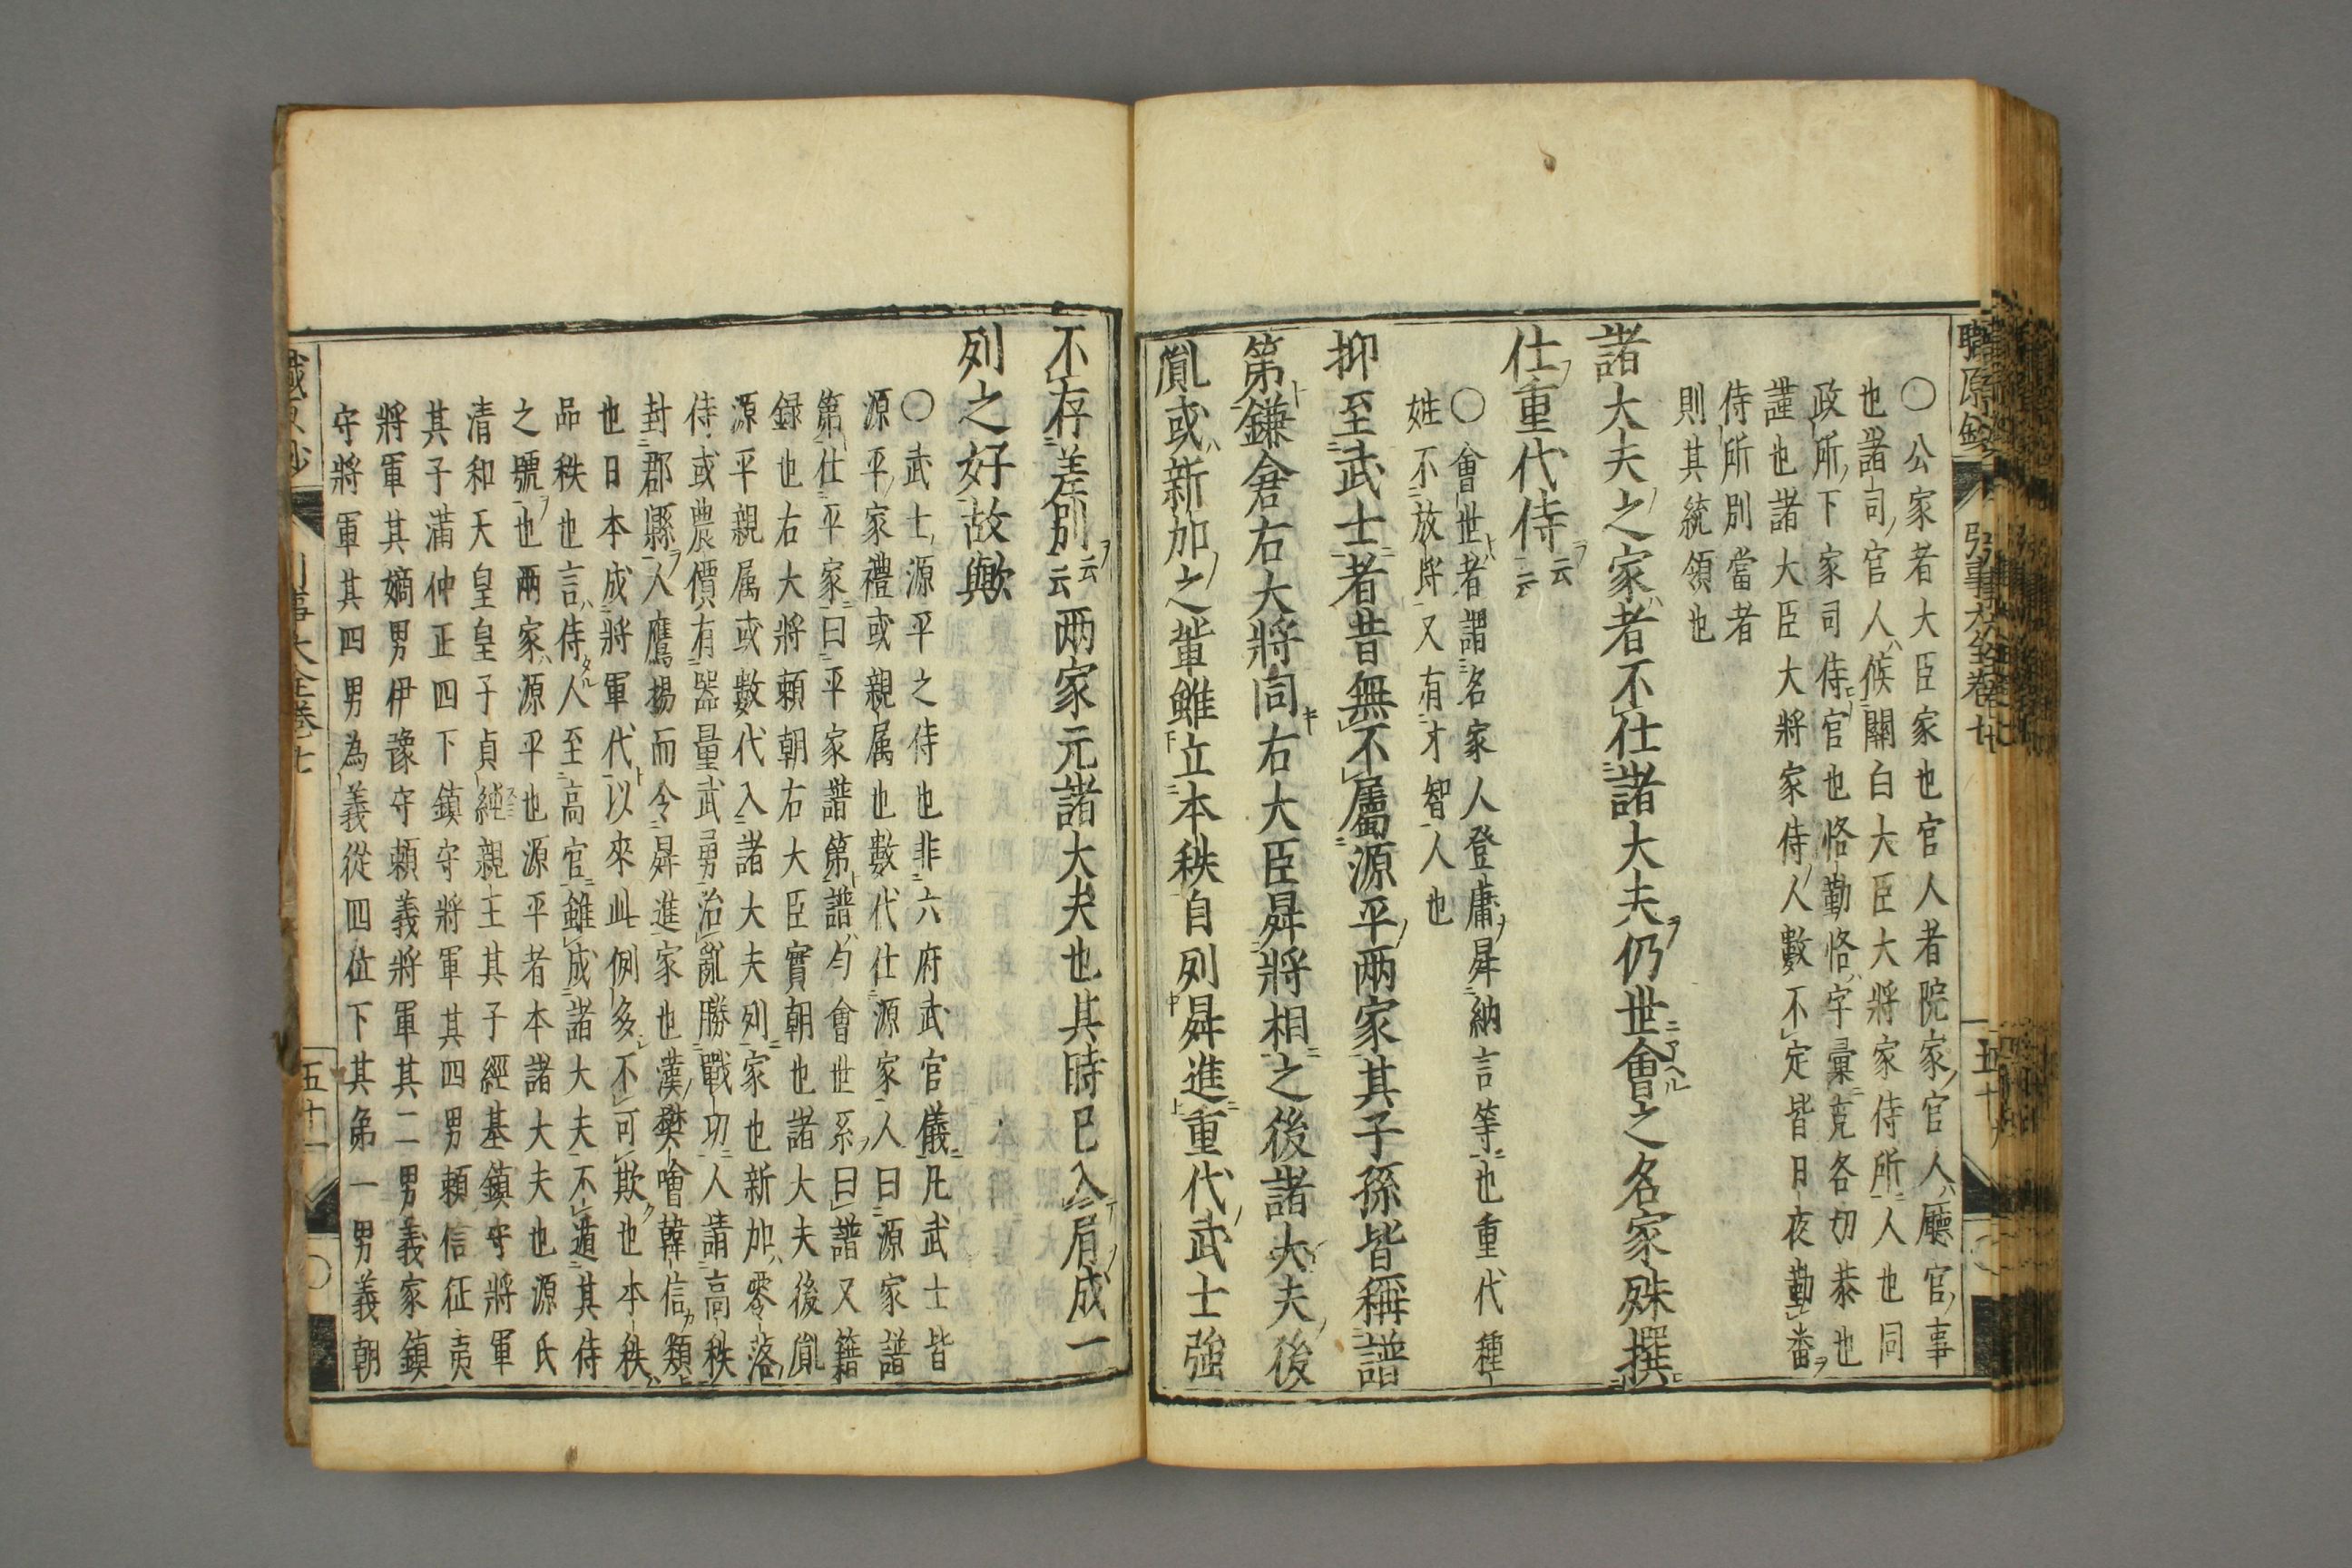 職原鈔 引事大全卷七 五十
〇公家者大臣家也官人者院家官人廳官事
也諸司官人候關白大臣大將家侍所人也同
政所下家司侍官也恪勤恪字彙克各切恭也
謹也諸大臣大將家侍人數不定皆日夜勤番
侍所別當者
則其統領也
諸大夫之家者不仕諸大夫仍世會之名家殊撰
仕重代侍云云
〇會世者謂名家人登庸昇納言等也重代種
姓不放埒又有才智人也
抑至武士者昔無不屬源平兩家其子孫皆稱譜
第鎌倉右大將同右大臣昇將相之後諸大夫後
胤或新加之輩雖立本秩自列昇進重代武士強
不存差別云云兩家元諸大夫也其時已入肩成一
列之好故歟
〇武士源平之侍也非六府武官儀凡武士皆
源平家禮或親属也數代仕源家人曰源家譜
第仕平家曰平家譜第譜勻會世系曰譜又籍
録也右大將頼朝右大臣實朝也諸大夫後胤
源平親属或數代入諸大夫列家也新加零落
侍或農價有器量武勇治亂勝戰功人請高秩
封郡縣人鷹揚而令昇進家也漢樊噲韓信類
也日本成將軍代以來此例多不可欺也本秩
品秩也言侍人至高官雖成諸大夫不遁其侍
之號也兩家源平也源平者本諸大夫也源氏
清和天皇皇子貞純親王其子經基鎮守將軍
其子滿仲正四下鎮守將軍其四男頼信征夷
將軍其嫡男伊豫守頼義將軍其二男義家鎮
守將軍其四男為義從四位下其第一男義朝
大全卷七 五十一